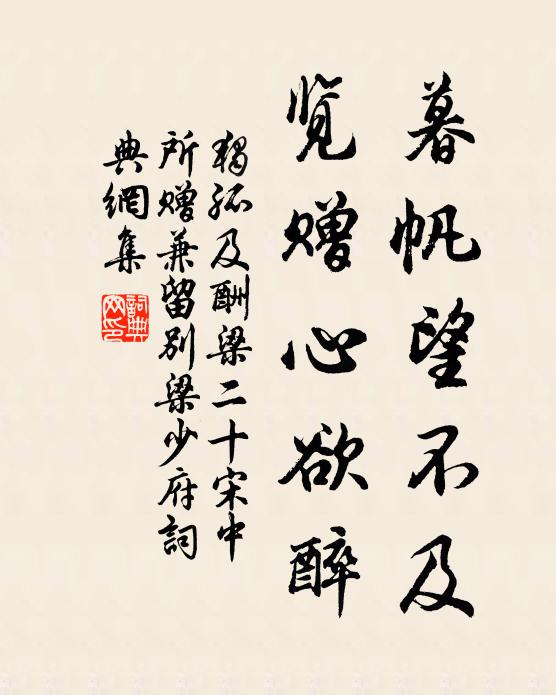 暮帆望不及
览赠心欲醉
獨孤及酬梁二十宋中
所赠兼留别梁少府詞
典網集
詞典网印